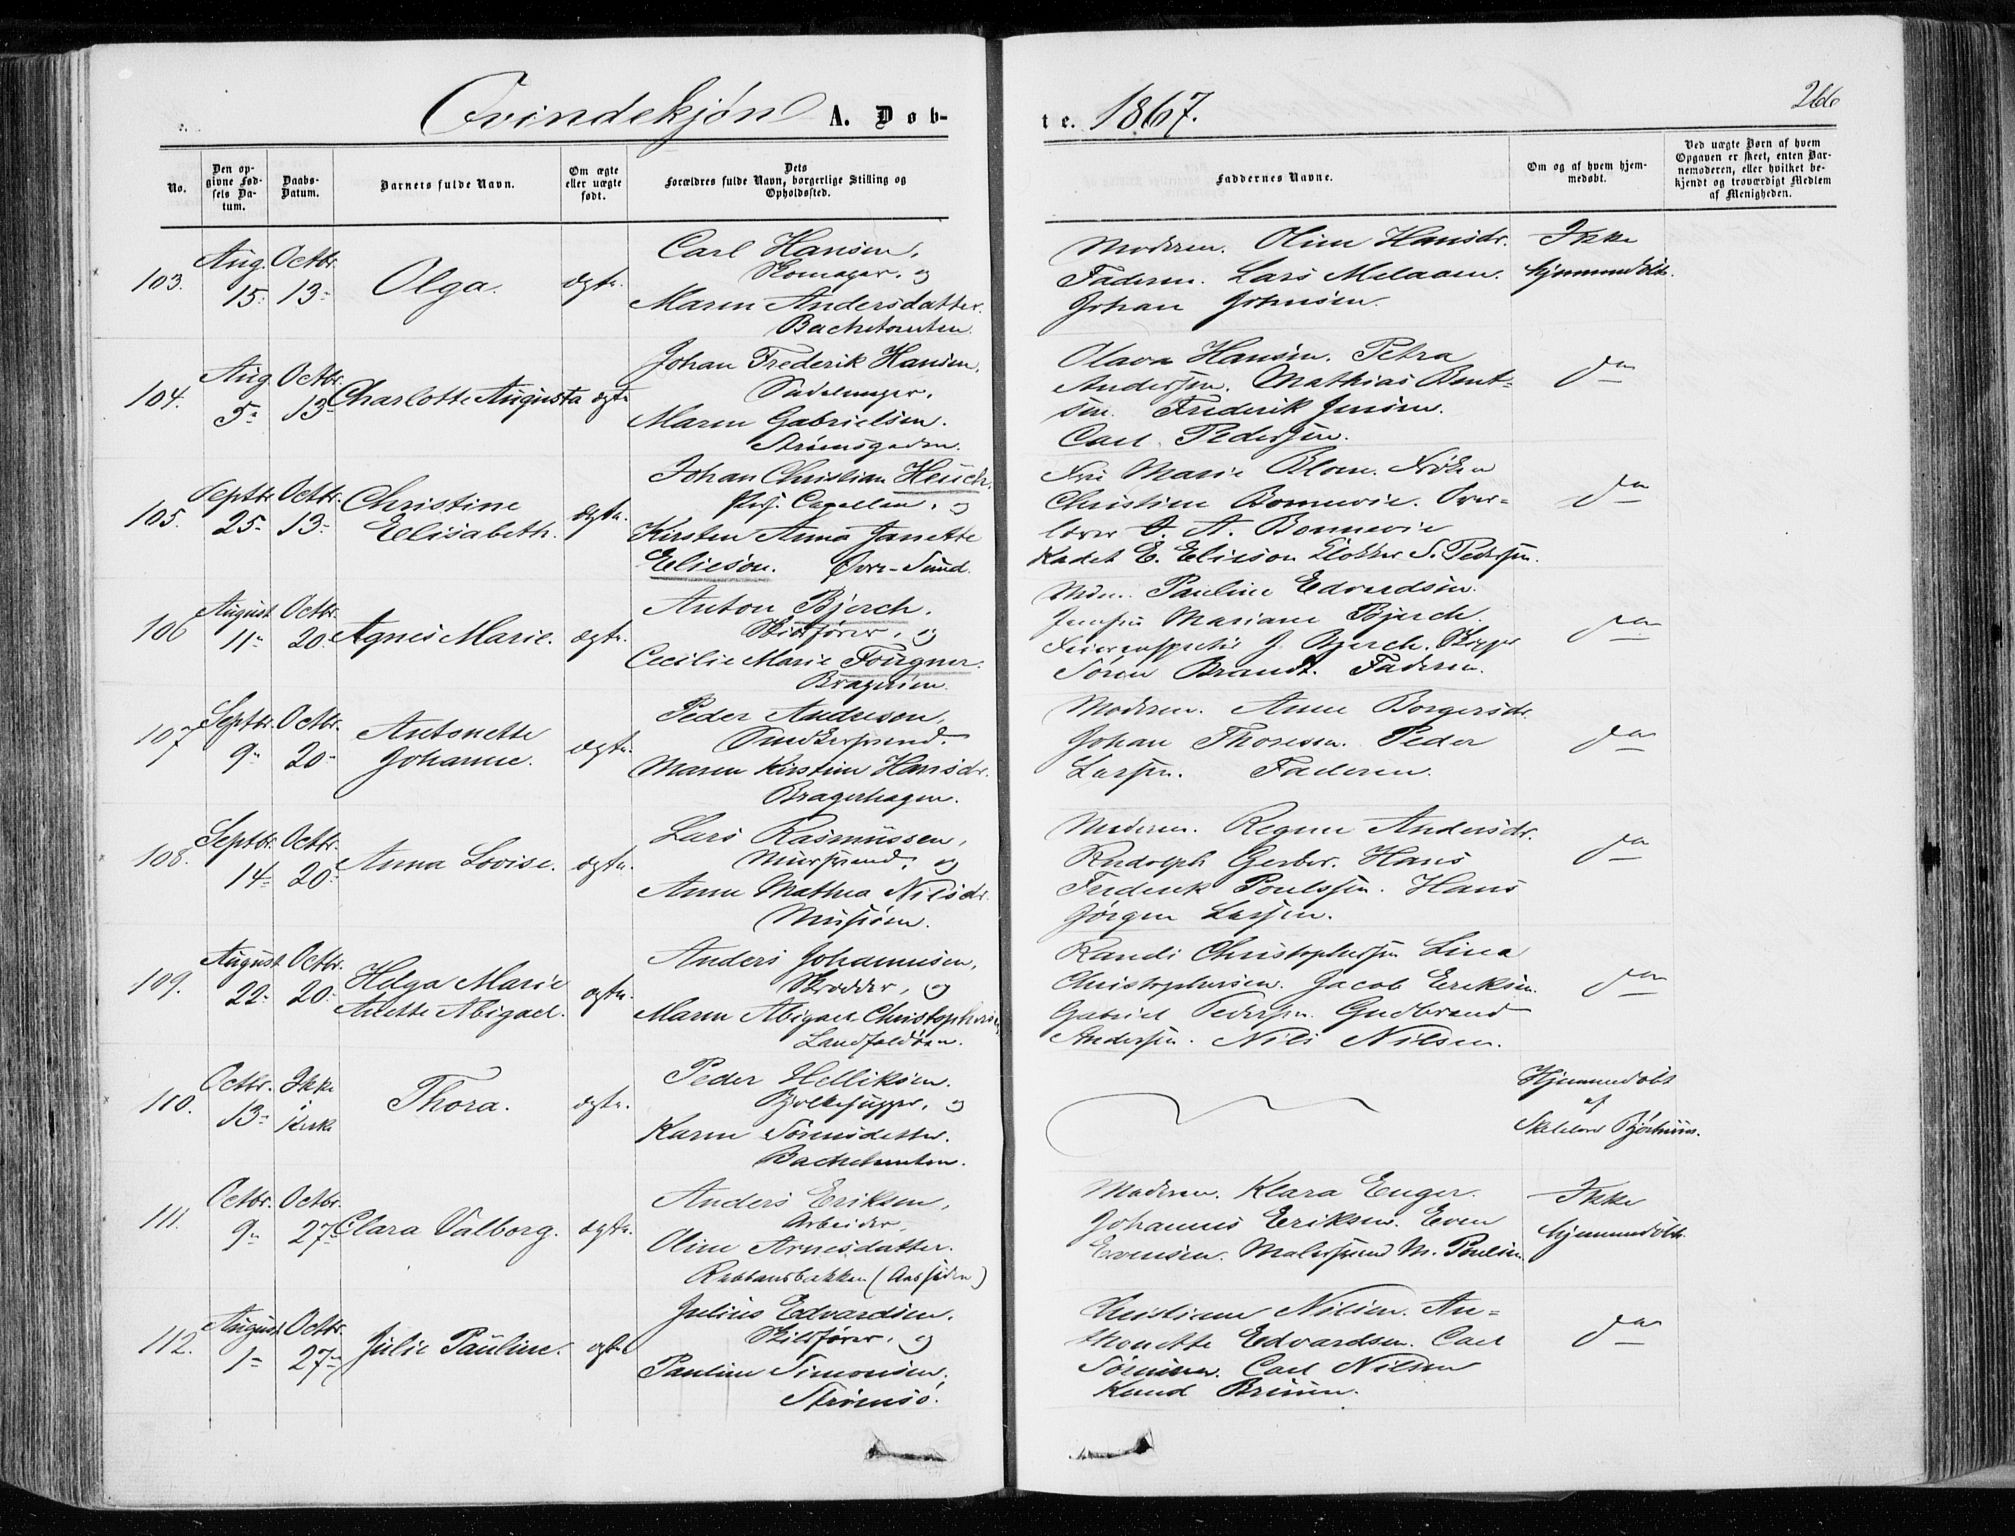 Qvindekjøn A. Døb-
te. 1867.
266
No.
Den op-
givne Fød-
sels Da-
tum.
Daabs-
Datum.
Barnets fulde Navn.
Om ægte
eller uægte
født.
Dets
Forældres fulde Navn, borgerlige Stilling og
Opholdssted.
Faddernes Navne.
Om og af hvem hjem-
medøbt.
Ved uægte Børn af hvem
Opgaven er skeet, enten Bar-
nemoderen, eller hvilket be-
kjendt og troværdigt Medlem
af Menigheden.
103.
Aug.
15
Octbr.
13
Olga.
ægte.
Carl Hansen,
Skomager, og
Maren Andersdatter.
Bachetomten.
Moderen. Oline Hansdr.
Faderen. Lars Melaaen.
Johan Johnsen.
Ikke
hjemmedøbt.
104.
Aug
5
Octbr.
13
Charlotte Augusta
ægte
Johan Frederik Hansen,
Sadelmager,
Maren Gabrielsen.
Strømsgaden.
Olava Hansen. Petra
Andersen. Mathias Bent-
sen. Frederik Jensen.
Carl Pedersen.
do
105.
Septbr.
25
Octbr.
13
Christine
Elisabeth.
ægte.
Johan Christian Heuch.
Pers. Capellan, og
Kirsten Anna Janette
Elieson. Øvre-Sund.
Marie Blom. Frøken
Christine Bonnevie. Over-
lærer J. A. Bonnevie
Kadet E. Elieson Klokker S. Pedersen.
do
106
August
11
Octbr.
20
Agnes Marie.
ægte.
Anton Bjerch.
Skibsfører, og
Cecilie Marie Fougner.
Bragernæs.
Pauline Edvardsen.
Jomfru Mariane Bjerch.
G. Bjerch. Skipper
Søren Brandt. Faderen.
do
107
Septbr.
9
Octbr.
20
Antonette
Johanne.
ægte.
Peder Anderson,
Smedesvend.
Maren Kirstine Hansdr.
Bragerhagen.
Moderen. Anne Borgersdr.
Johan Thoresen. Peder
Larsen. Faderen.
do
108.
Septbr.
14
Octbr.
20
Anna Lovise.
ægte.
Lars Rasmussen,
Mursvend, og
Anne Mathea Nilsdr.
Moderen. Regine Andersdr.
Rudolph Gerber. Hans
Frederik Poulsen. Hans
Jørgen Larsen.
do
109.
August
22
Octbr.
20
Helga Marie
Anette Abigael.
ægte.
Anders Johannesen,
Skrædder, og
Maren Abigael Christophersen,
Landfaldøen.
Randi Christophersen Lina
Christophersen. Jacob Eriksen.
Gabriel Pedersen. Gudbrand
Andersen. Nils Nilsen.
do
110.
Octbr.
13
Ikke
i
Kirke
Thora.
ægte.
Peder Helliksen.
Bjelkehugger, og
Karen Sørensdatter.
Bachetomten.
Hjemmedøbt
af
111.
Octbr.
9
Octbr.
27
Clara Valborg.
ægte.
Anders Eriksen,
Arbeider,
Oline Arnesdatter.
Rabbansbakken (Aassiden)
Moderen. Klara Enger.
Johannes Eriksen. Even
Evensen. Malersvend M. Poulsen.
Ikke
hjemmedøbt.
112.
August
1
Octbr.
27
Julie Pauline.
ægte
Julius Edvardsen.
Skibsfører, og
Pauline Simonsen,
Strømsø.
Christiane Nilsen. An-
thonette Edvardsen. Carl
Carl Nilsen
Knud Bruun.
do